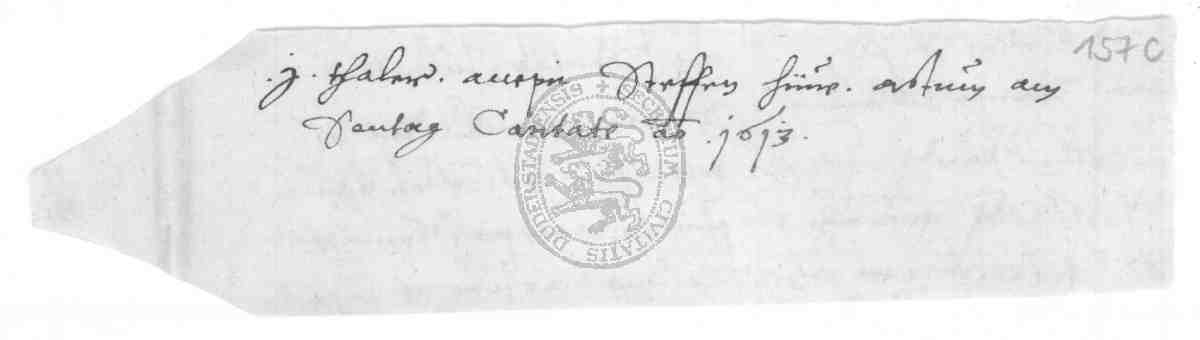 157 C
.j. thaler. accepi Steffen hüw. actum am
Sontag Cantate ao .1613.
DUDERSTADENSIS + SECRETUM CIVITATIS